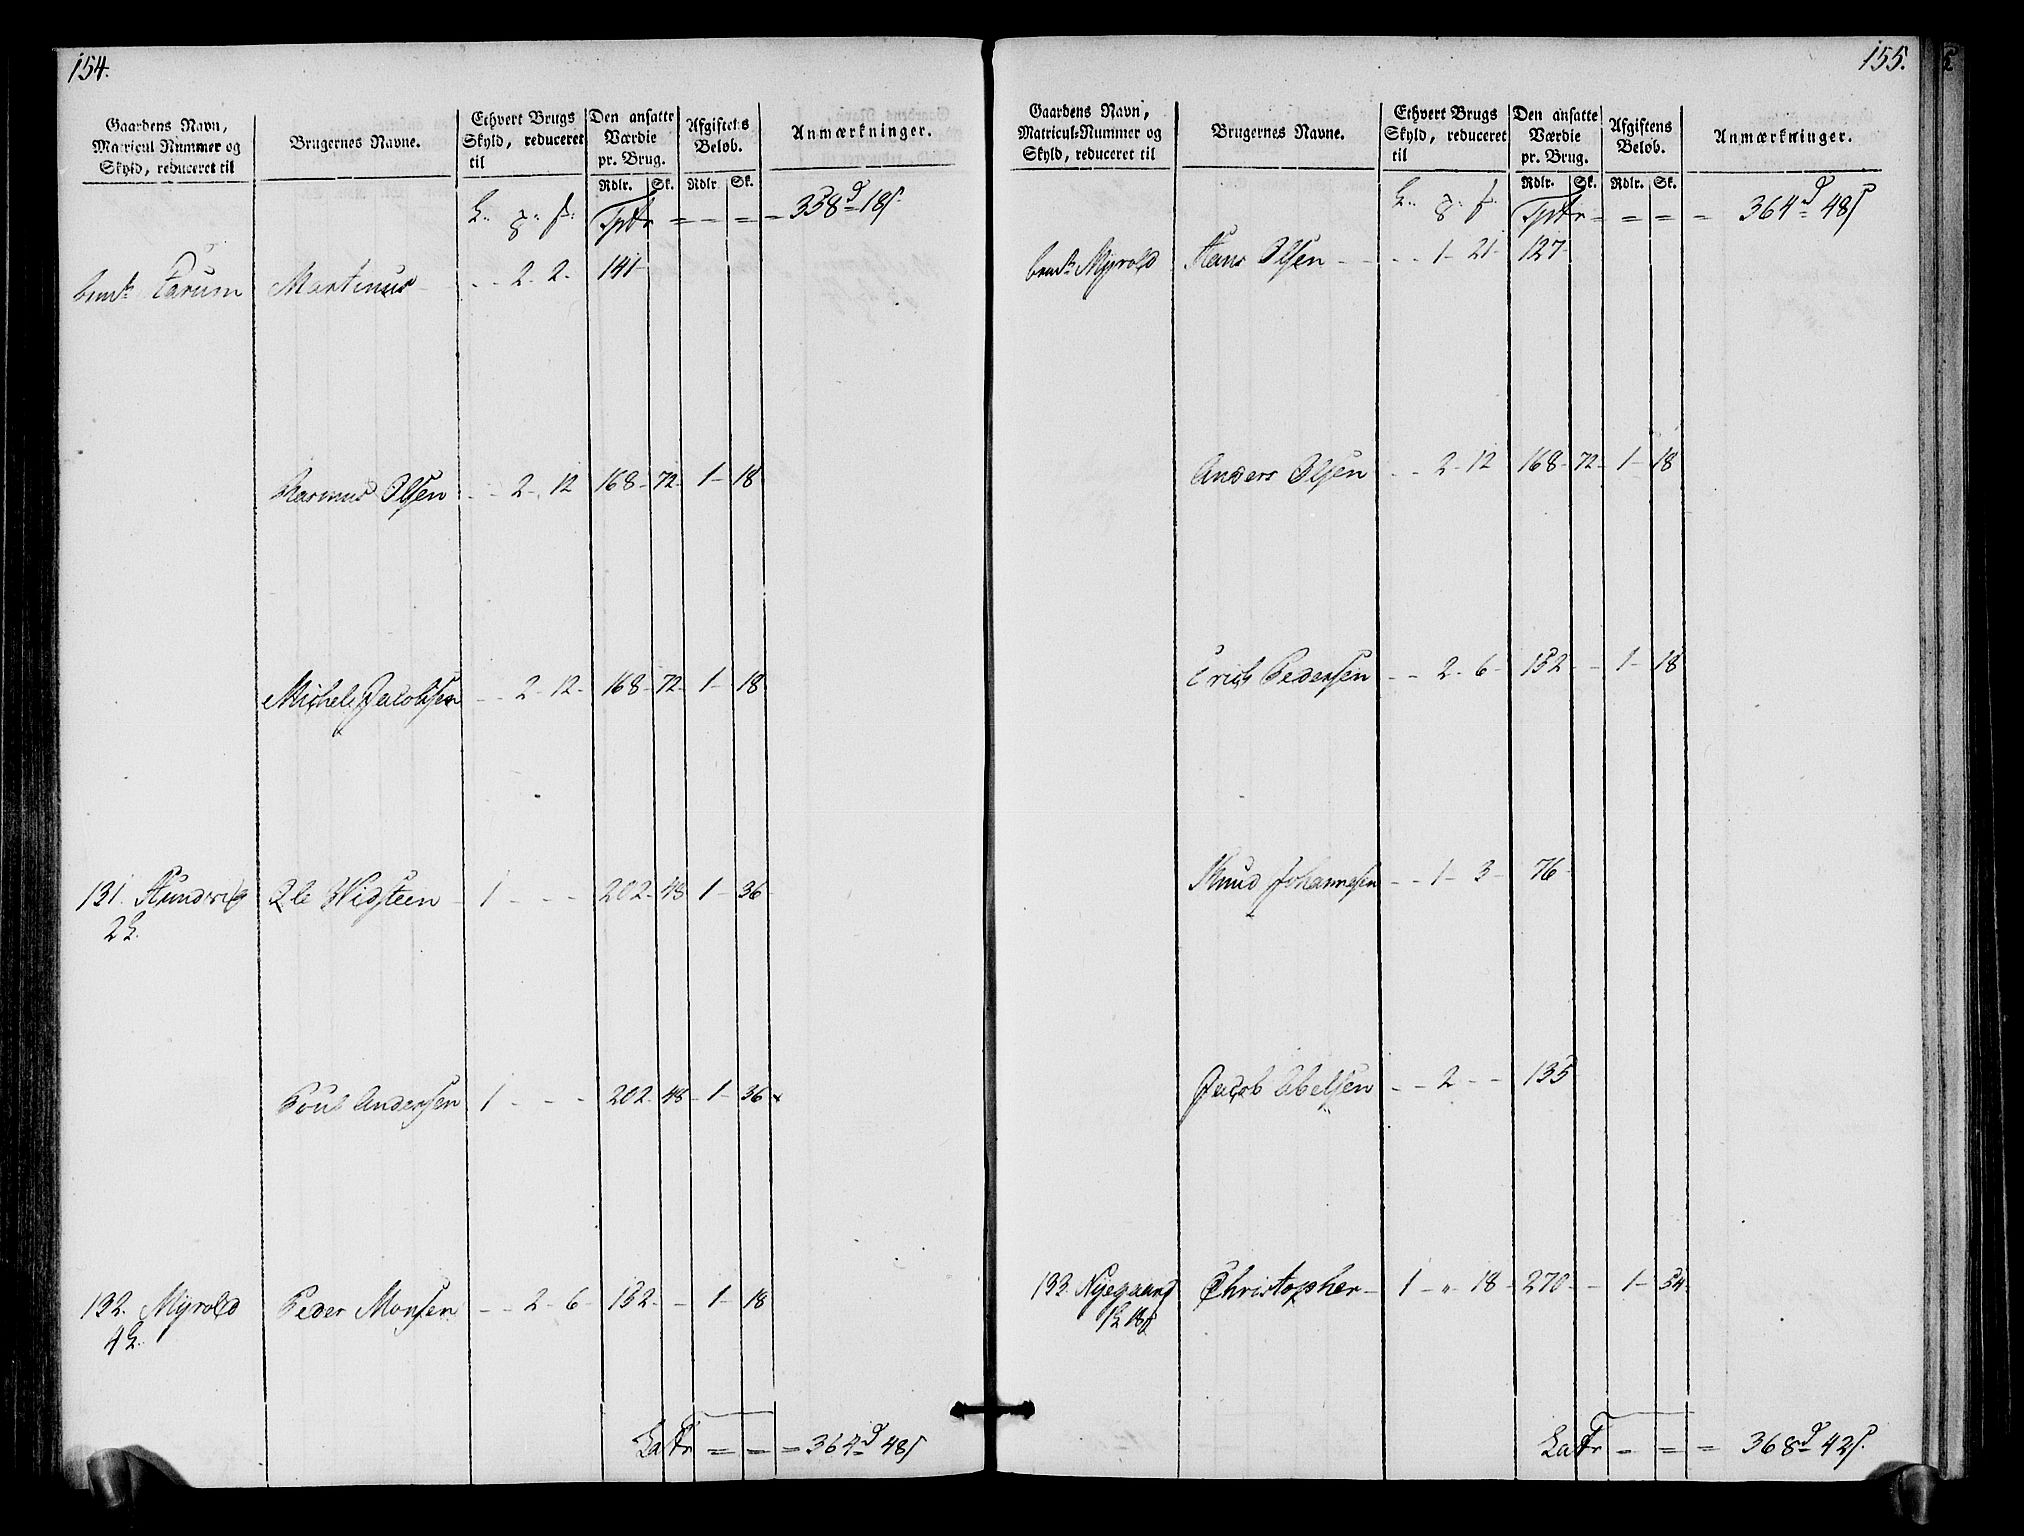 154.
Gaardens Navn, Matricul Nummer og Skyld, reduceret til | Brugernes Navne. | Ethvert Brugs Skyld, reduceret til | Den ansatte Værdie pr. Brug. | Afgiftens Beløb. | Anmærkninger.
Rdlr. Sk. Rdlr Sk.
Tptr = – = – 358d 18s
Farum Martinus - - 2 - 2 - 141 -
Rasmus Olsen - - 2 - 12 168 - 72 - 1 - 18
Michel Jacobsen - - 2 - 12 - 168 - 72 - 1 - 18
131. Ole Widsteen - 1 - - - 202 - 48 1 - 36
2
Poul Andersen 1 - - - 202 - 48 - 1 - 36
132. Myrold Peder Monsen - - 2 - 6 - 152 - - 1 - 18
4
Latr = = = 364d 48s
155.
Gaardens Navn, Matricul-Nummer og Skyld, reduceret til | Brugernes Navne. | Ethvert Brugs Skyld, reduceret til | Den ansatte Værdie pr. Brug. | Afgiftens Beløb. | Anmærkninger.
Rdlr. Sk. Rdlr. Sk.
Tptr = = = = 364d 48s
Myrold Hans Olsen - - - - 1 - 21 - 127 -
Anders Olsen - - 2 - 12 168 - 72 - 1 - 18
Erich Pedersen - - 2 - 6 - 152 - - 1 - 18
Knud Johannesen - - 1 - 3 - 76 -
Jacob Abelsen - - 2 - - 135
133. Nyegaard Christopher - 1 - " - 18 - 270 - - 1 - 54
Latr = = = 368d 42s